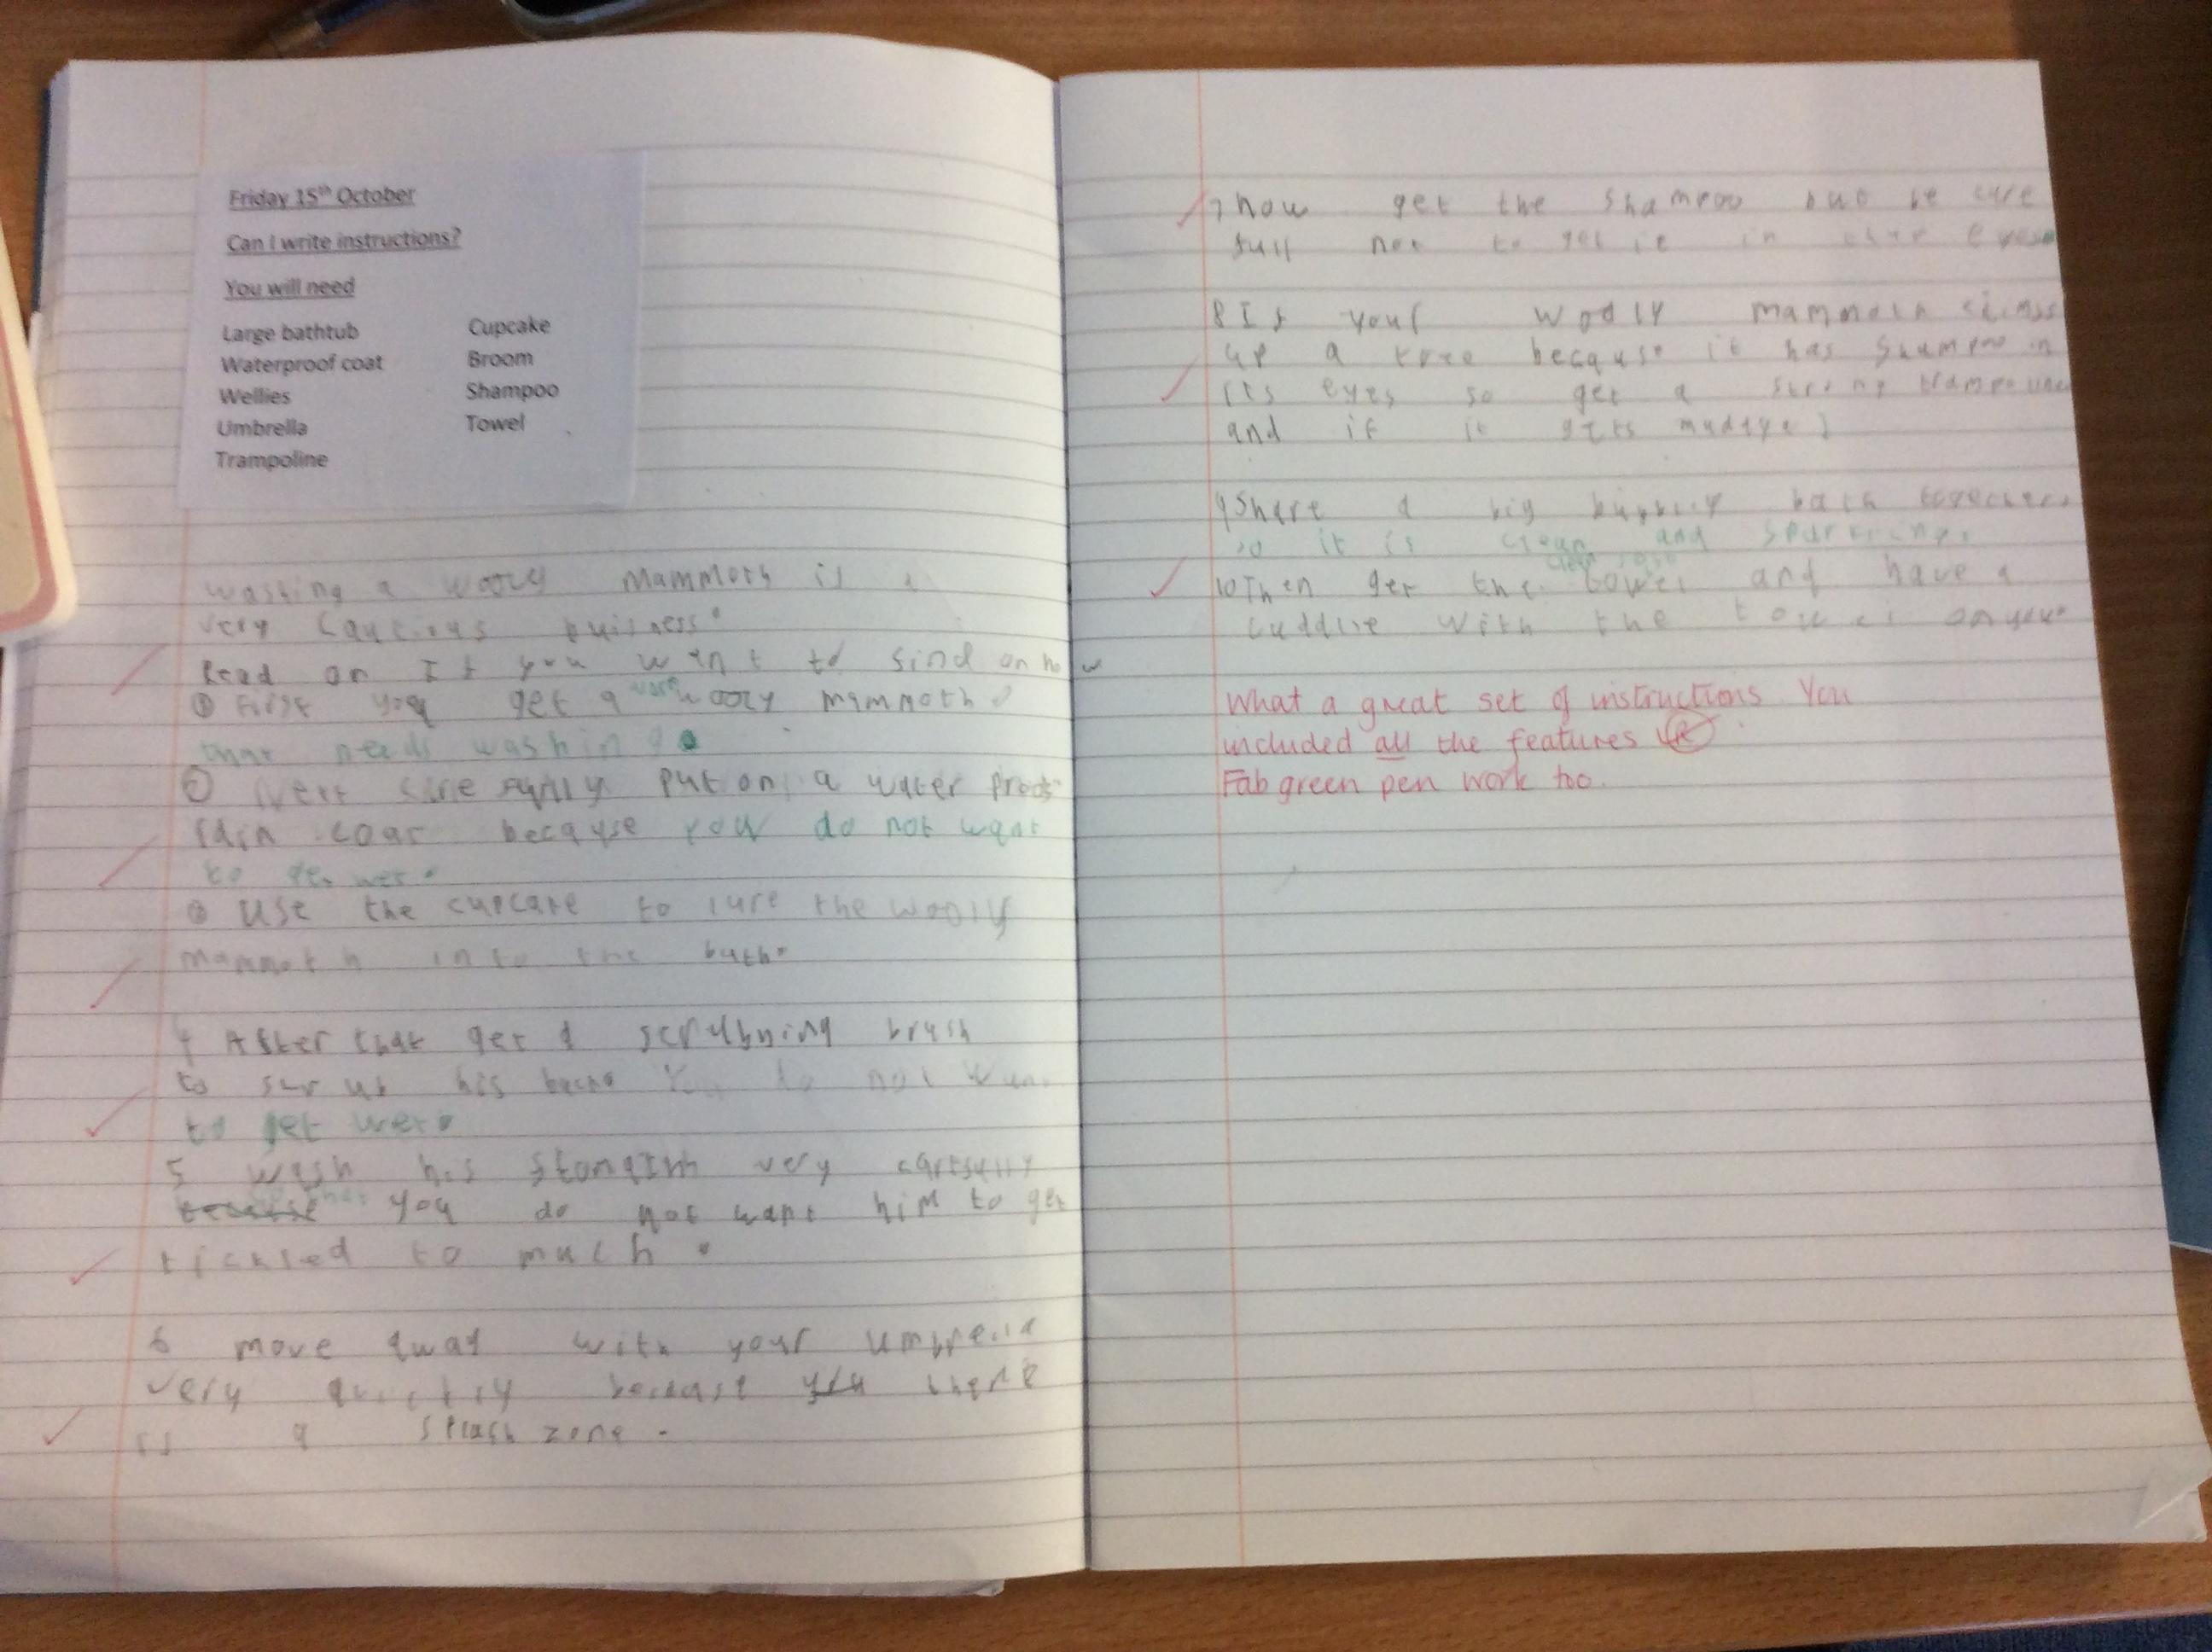 Friday 15th October
Can I write instructions?
You will need
Large bathtub
Waterproof coat
Wellies
Umbrella
Trampoline
Cupcake
Broom
Shampoo
Towel
washing a wooly mammoth is a
very buisness.
Read on If you want to find on how
① First you get a wooly mammoth
that needs washing.
② put on a water proof
rain coat because you do not want
to get wet.
③ Use the cupcake to lure the woolly
mammoth into the bath.
4 After that get a scrubbying brush
to scrub his back You do not want
to get wet.
5 wash his very carefully
because you do not want him to get
tickled to much.
6 move away with your umbrella
very quickly because you there
is a splash zone.
7 now get the shampoo but be care
full not to get it in eyes
8 If your woolly mammoth climbs
up a tree because it has in
its eyes so get a strong
and if it gets
9 Share a big bubbly bath
so it is clean and
10 Then get the towel and have a
cuddle with the towel
What a great set of instructions. You
included all the features
Fab green pen work too.